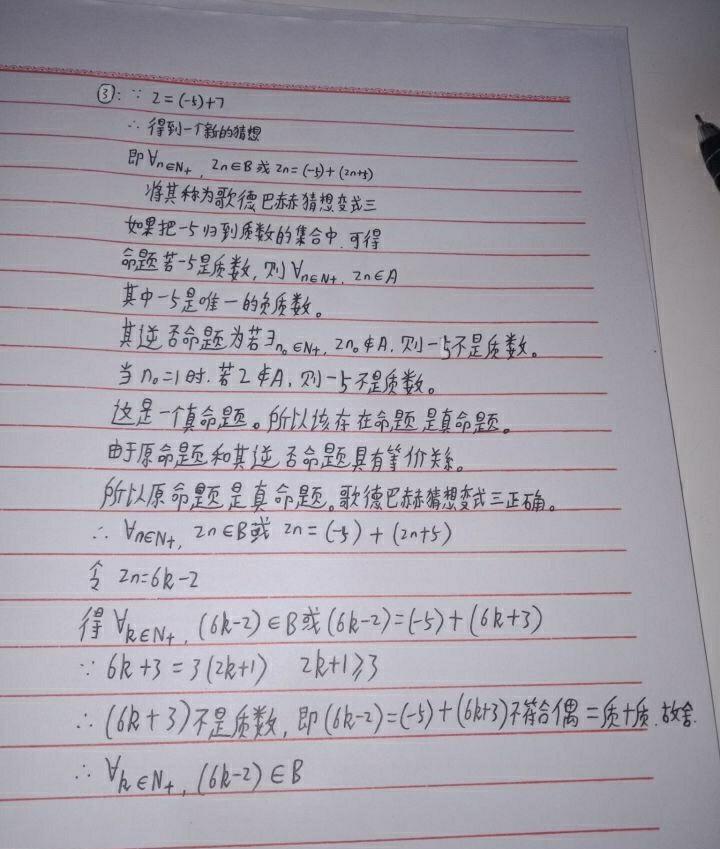 ③: ∵ 2=(-5)+7
∴ 得到一个新的猜想
即∀n∈N+, 2n∈B或2n=(-5)+(2n+5)
将其称为歌德巴赫猜想变式三
如果把-5归到质数的集合中,可得
命题若-5是质数,则∀n∈N+, 2n∈A
其中-5是唯一的负质数。
其逆否命题为若∃n₀∈N+, 2n₀∉A,则-5不是质数。
当n₀=1时,若2∉A,则-5不是质数。
这是一个真命题。所以该存在命题是真命题。
由于原命题和其逆否命题具有等价关系。
所以原命题是真命题。歌德巴赫猜想变式三正确。
∴ ∀n∈N+, 2n∈B或 2n=(-5)+(2n+5)
令 2n=6k-2
得∀k∈N+, (6k-2)∈B或(6k-2)=(-5)+(6k+3)
∵ 6k+3=3(2k+1) 2k+1≥3
∴ (6k+3)不是质数,即(6k-2)=(-5)+(6k+3)不符合偶=质+质,故舍.
∴ ∀k∈N+, (6k-2)∈B